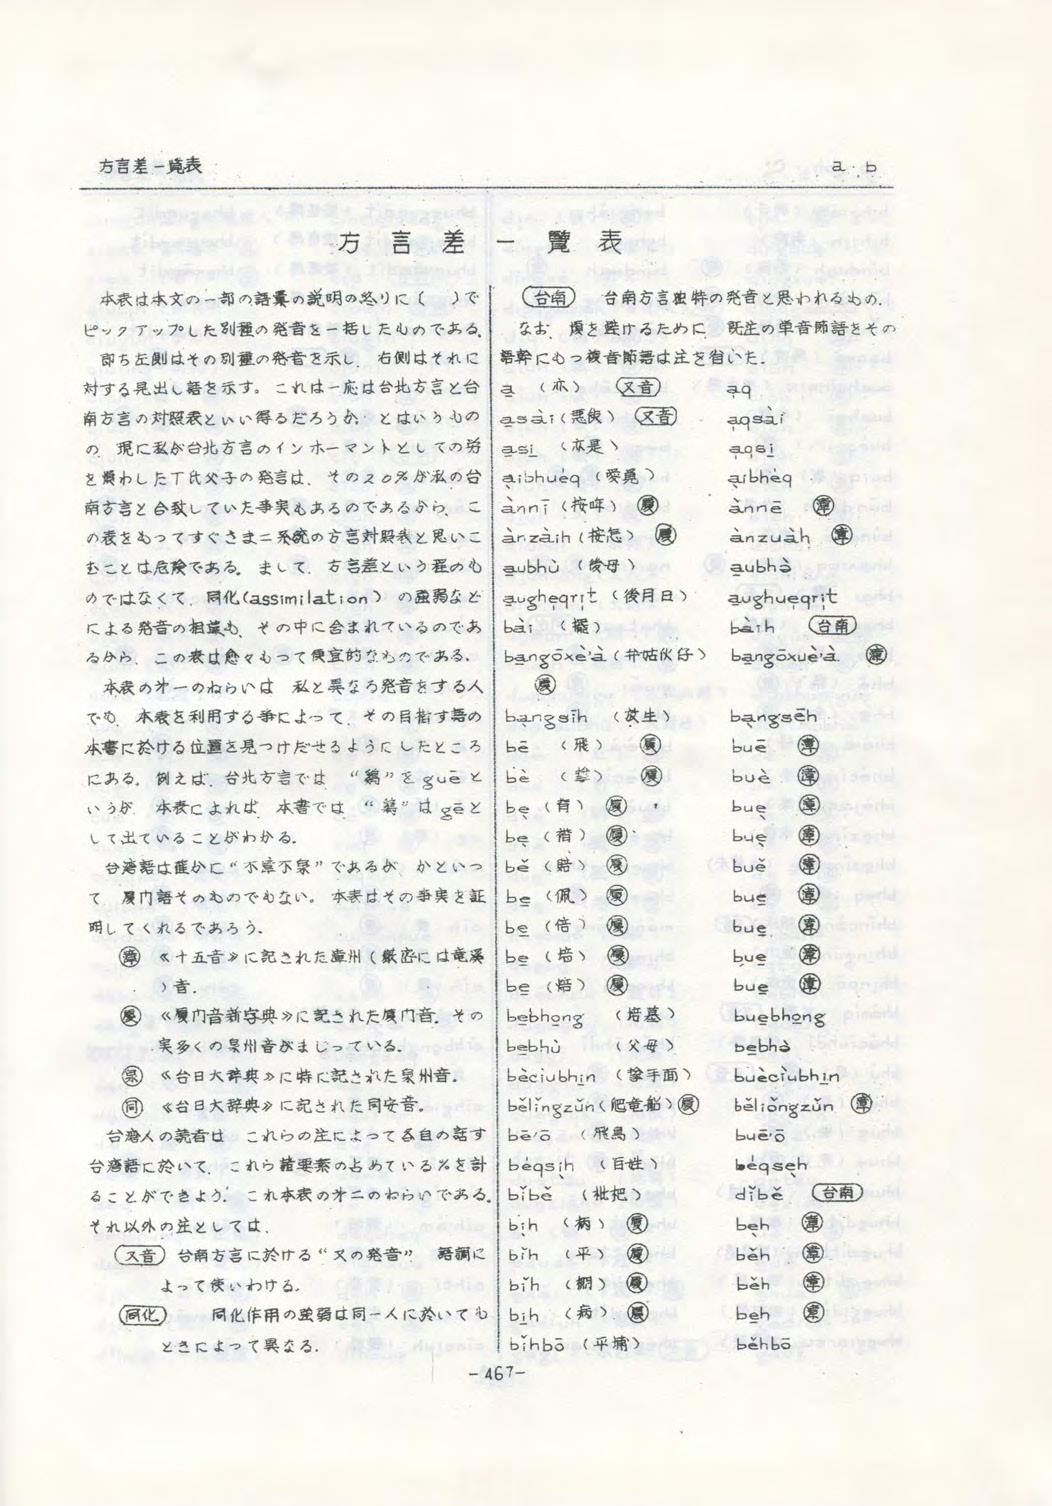 方言差一覧表
a · b
方言差一覽表
本表は本文の一部の語彙の説明の終りに〔　〕で
ピックアップした別種の発音を一括したものである．
即ち左側はその別種の発音を示し，右側はそれに
対する見出し語を示す。これは一応は台北方言と台
南方言の対照表といい得るだろうか，とはいうもの
の，現に私が台北方言のインホーマントとしての労
を煩わした丁氏父子の発言は，その20％が私の台
南方言と合致していた事実もあるのであるから，こ
の表をもってすぐさま二系統の方言対照表と思いこ
むことは危険である。まして，方言差という程のも
のではなくて，同化(assimilation)の強弱など
による発音の相違も，その中に含まれているのであ
るから，この表は愈々もって便宜的なものである．
本表の才一のねらいは　私と異なる発音をする人
でも，本表を利用する事によって，その目指す語の
本書に於ける位置を見つけだせるようにしたところ
にある。例えば，台北方言では　“鷄”を guē と
いうが，本表によれば，本書では，“鷄”は gē と
して出ていることがわかる．
台湾語は確かに“不漳不泉”であるが，かといっ
て　厦门語そのものでもない。本表はその事実を証
明してくれるであろう．
㊟漳 《十五音》に記された漳州（厳密には竜溪
）音．
厦 《厦门音新字典》に記された厦门音．その
実多くの泉州音がまじっている．
泉 《台日大辞典》に特に記された泉州音．
同 《台日大辞典》に記された同安音．
台湾人の読者は　これらの注によって各自の話す
台湾語に於いて，これら諸要素の占めている％を計
ることができよう．これ本表の才二のねらいである．
それ以外の注としては，
又音 台南方言に於ける“又の発音”　語調に
よって使いわける．
同化 同化作用の强弱は同一人に於いても
ときによって異なる．
台南 台南方言独特の発音と思われるもの．
なお，煩を避けるために　既注の単音節語をその
語幹にもつ複音節語は注を省いた．
a̱ （亦） 又音 a̩q
a̱sài（悪食） 又音 a̩qsài
a̱si̱ （亦是） a̩qsi̱
a̩ibhuéq（愛覓） a̩ibhèq
ànnī（按年） 厦 ànnē 漳
ànzàih（按怎） 厦 ànzuàh 漳
a̱ubhù（後母） a̱ubhò
a̱ughe̱qri̩t（後月日） a̱ughue̱qri̩t
bài（擺） bàih 台南
ba̱ngōxè'à（弁咕伙仔） 厦 ba̱ngōxuè'à 漳
ba̩ngsīh（放生） ba̩ngsēh
bē （飛） 厦 buē 漳
bè （掌） 厦 buè 漳
be̩（背） 厦 bue̩ 漳
be̩（褙） 厦 bue̩ 漳
bě（賠） 厦 buě 漳
be̱（佩） 厦 bue̱ 漳
be̱（倍） 厦 bue̱ 漳
be̱（培） 厦 bue̱ 漳
be̱（焙） 厦 bue̱ 漳
be̱bho̱ng（培墓） bue̱bho̱ng
be̱bhù（父母） be̱bhò
bèciubhi̱n（掌手面） buèciubhi̱n
bělǐngzǔn（爬竜船） 厦 běliǒngzǔn 漳
bē'ō（飛烏） buē'ō
béqsi̩h（百姓） béqse̩h
bǐbě（枇杷） dǐbě 台南
bi̩h（柄） 厦 be̩h 漳
bǐh（平） 厦 běh 漳
bǐh（棚） 厦 běh 漳
bi̱h（病） 厦 be̱h 泉
bǐhbō（平埔） běhbō
-467-